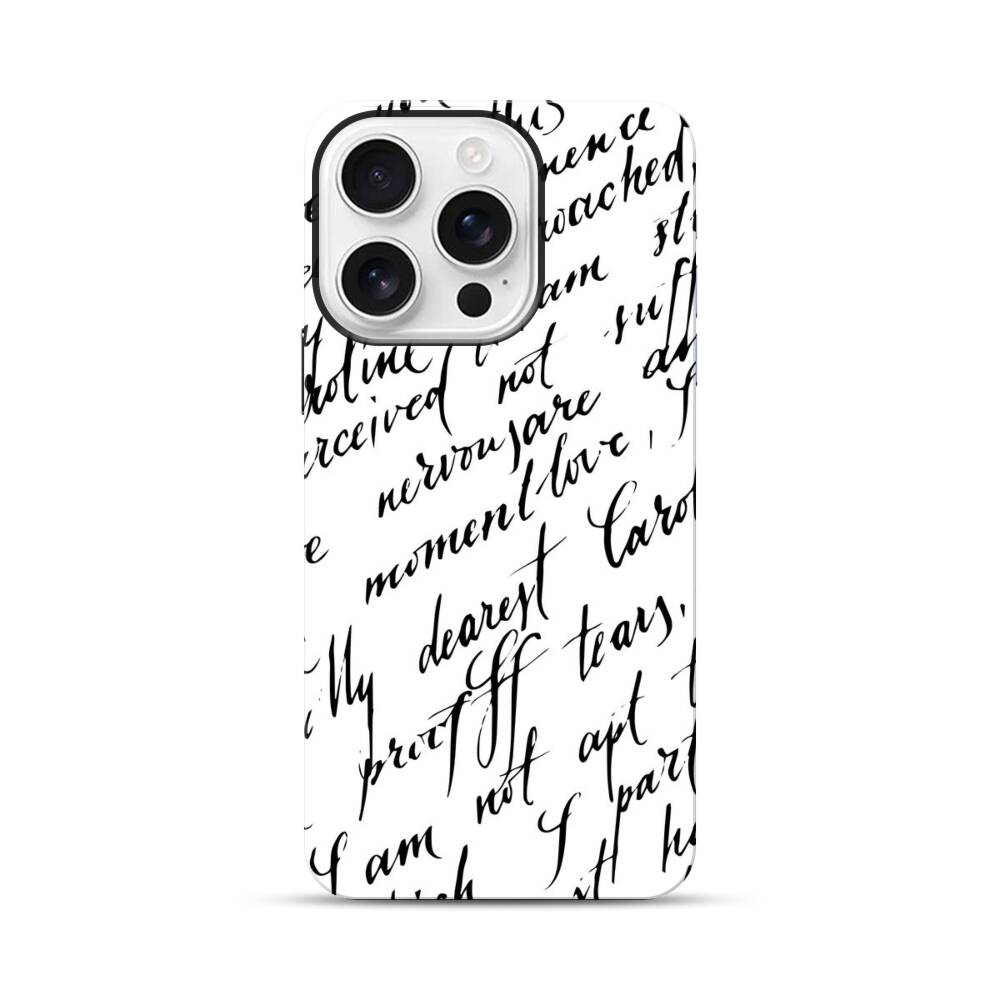 this
nence
roached,
am st
roline
erceived not suff
nervous are
e moment love, I
My dearest Carol
proof tears.
I am not apt t
I part
it ha